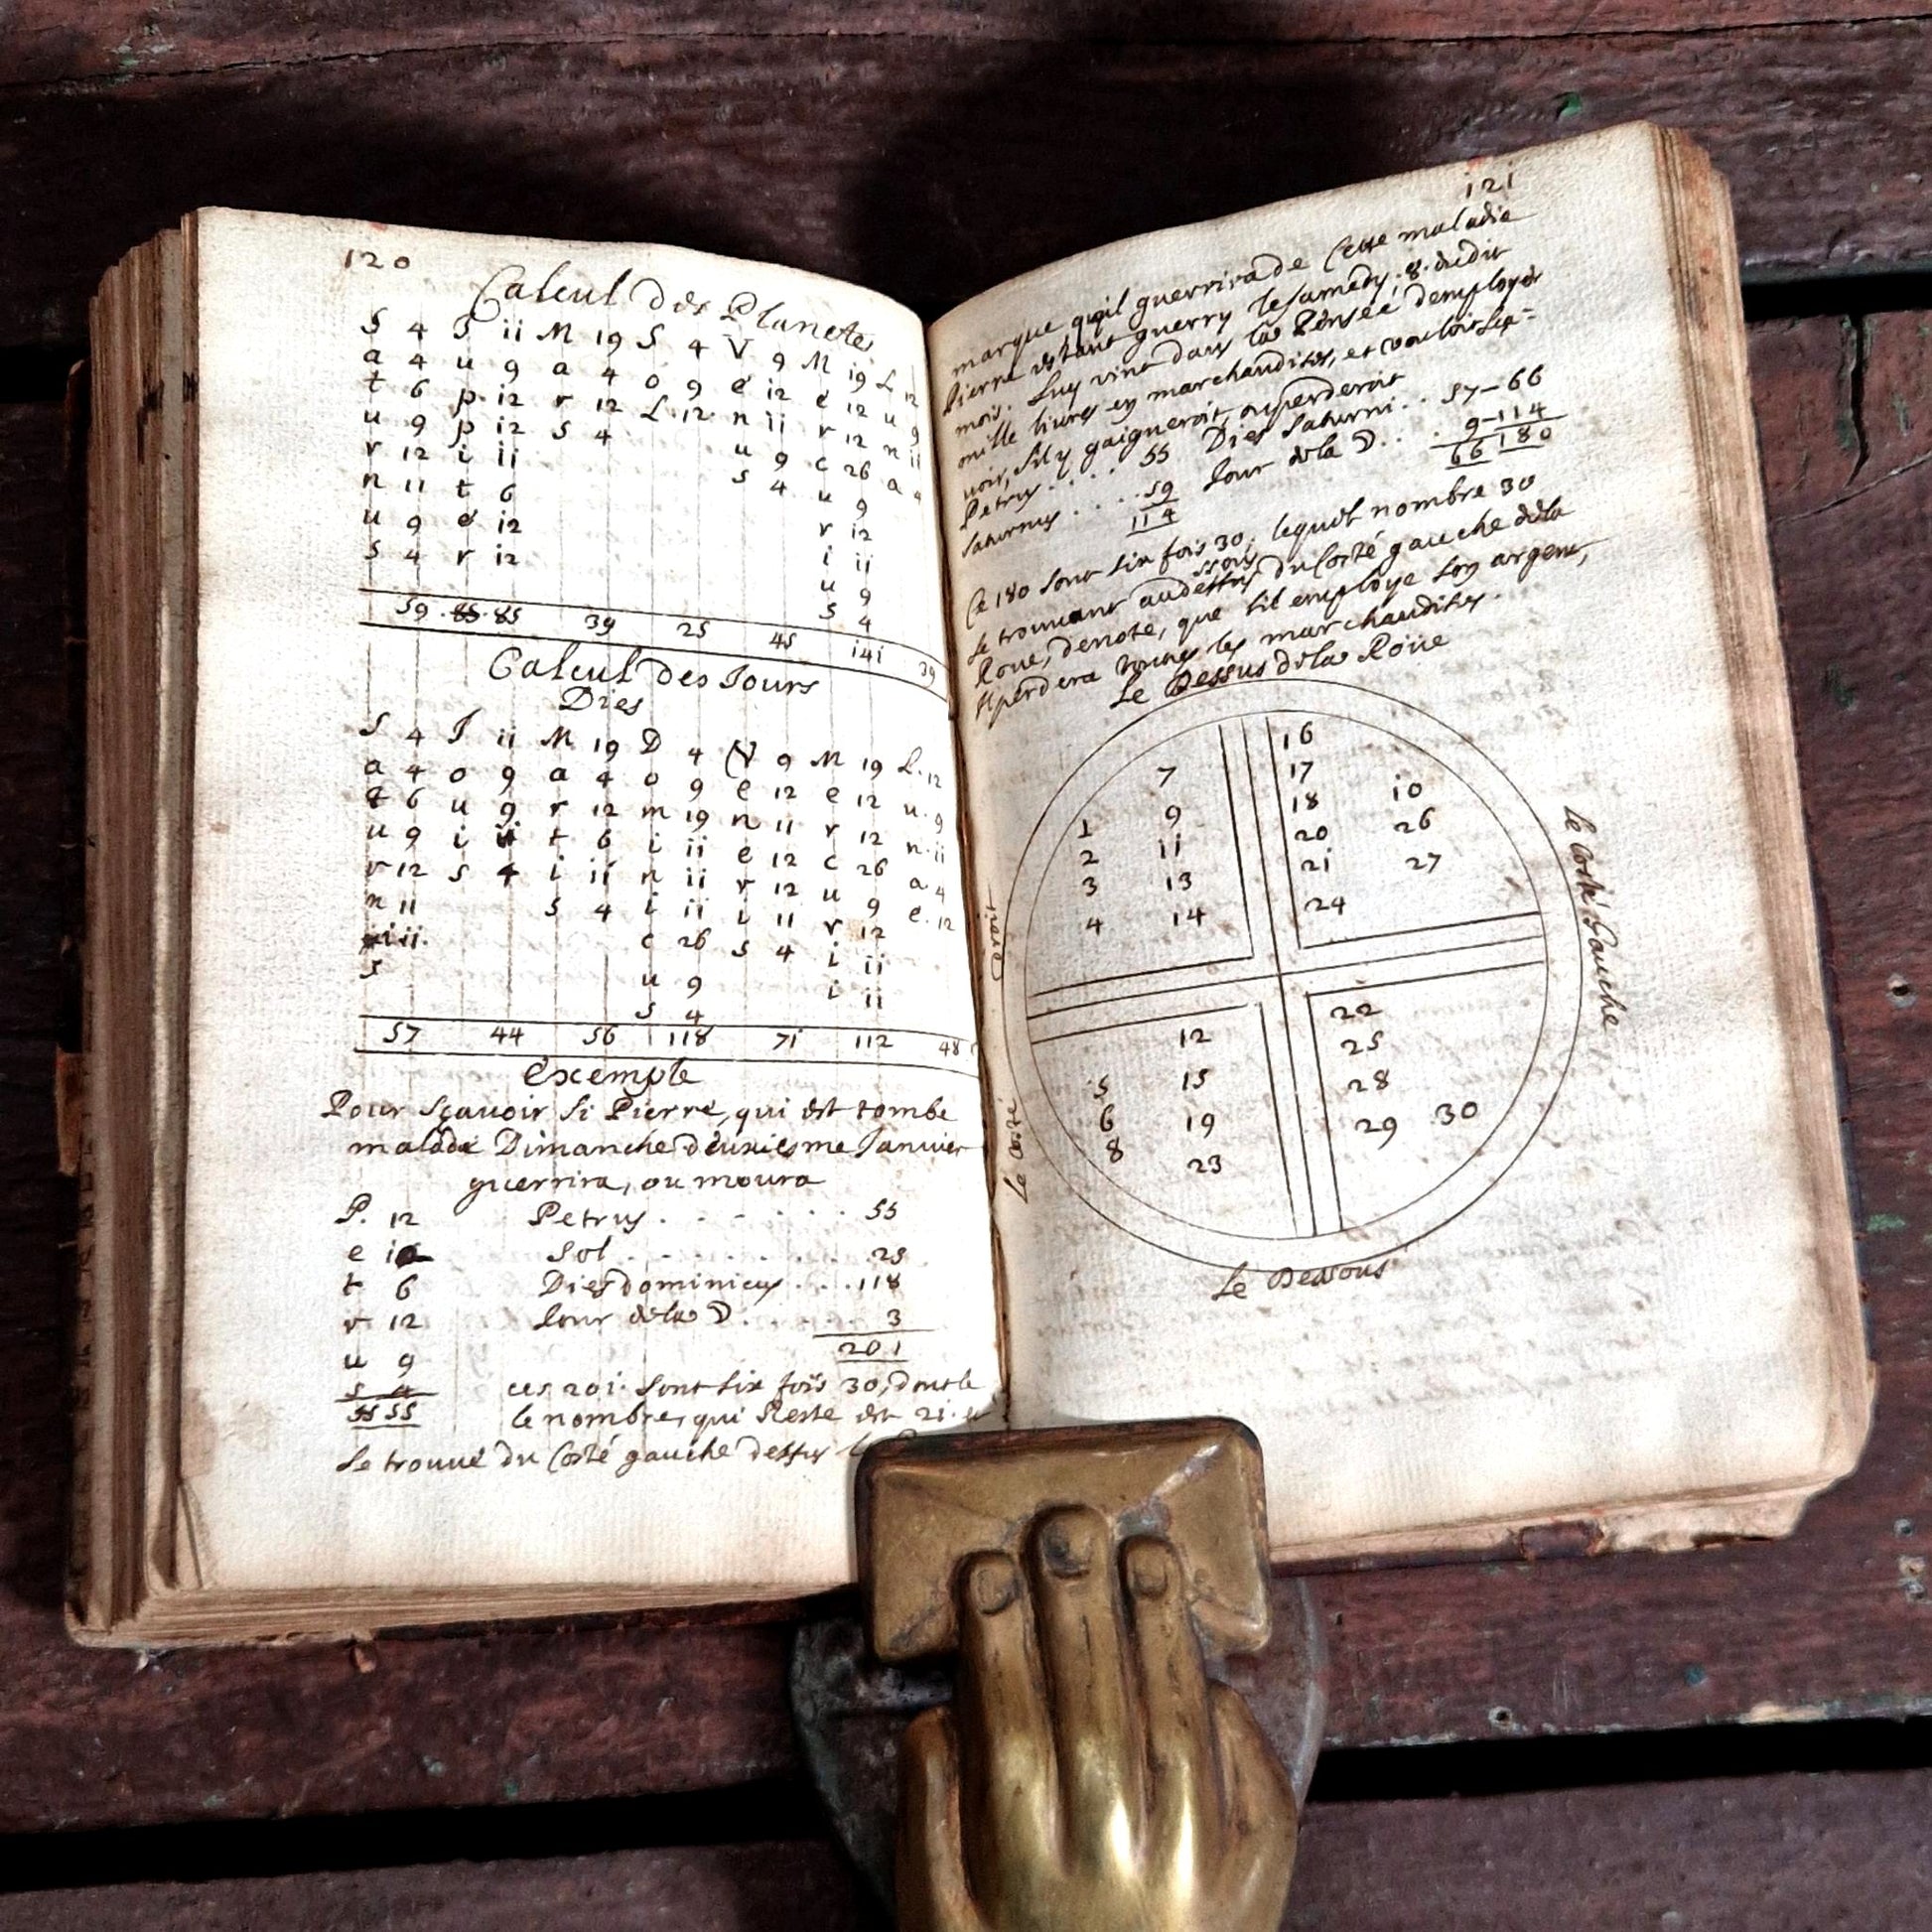 120
Calcul des Planetes
S 4 J ii M 19 S 4 V 9 M 19 L 12
a 4 u 9 a 4 o 9 e 12 e 12 u 9
t 6 p 12 r 12 L 12 n ii r 12 n ii
u 9 p 12 S 4 u 9 c 26 a 4
r 12 i ii S 4 u 9
n 11 t 6 r 12
u 9 e 12 i ii
S 4 r 12 u 9
S 4
59 . 85 . 85 39 25 45 141 39
Calcul des Jours
Dies
S 4 J ii M 19 D 4 V 9 M 19 L. 12
a 4 o 9 a 4 o 9 e 12 e 12 u. 9
t 6 u 9 r 12 m 19 n 11 r 12 n. ii
u 9 i ii t 6 i ii e 12 c 26 a 4
r 12 s 4 i ii n ii r 12 u 9 e. 12
n 11 s 4 i ii i 11 r 12
i ii. c 26 s 4 i ii
s u 9 i ii
s 4
57 44 56 118 71 112 48
Exemple
Pour sçauoir si Pierre, qui est tombe
malade Dimanche deuxiesme Januier
guerrira, ou moura
P. 12 Petrus . . . . . . 55
e 12 Sol . . . . . . . 25
t 6 Dies dominicus . . . 118
r 12 Jour de la ☽ . . . 3
u 9 201
s 4 ces 201. sont six fois 30, dont le
55 55 le nombre, qui Reste est 21. et
se trouue du Costé gauche dessus
121
marque qu'il guerrira de Cette maladie
Pierre estant guerry le samedy, 8. dudit
mois. Luy vint dans la Pensée d'employer
mille liures en marchandises, et vouloir sça-
uoir, s'il y gaigneroit, ou perderoit
Petrus . . . . 55 Dies Saturni . . 57–66
Saturnus . . . 59 Jour de la ☽ . . . 9–114
114 66 180
Ce 180 sont six fois 30, lequel nombre 30
ssous
se trouuant au dessus du Costé gauche de la
Roue, denote, que s'il employe son argent,
Il perdera toutes les marchandises.
Le Dessus de la Roüe
7 16
17
1 9 18 10
2 ii 20 26
3 13 21 27
4 14 24
Le Costé Gauche
Le Costé Droit
12 22
25
5 15 28
6 19 29 30
8 23
Le Dessous